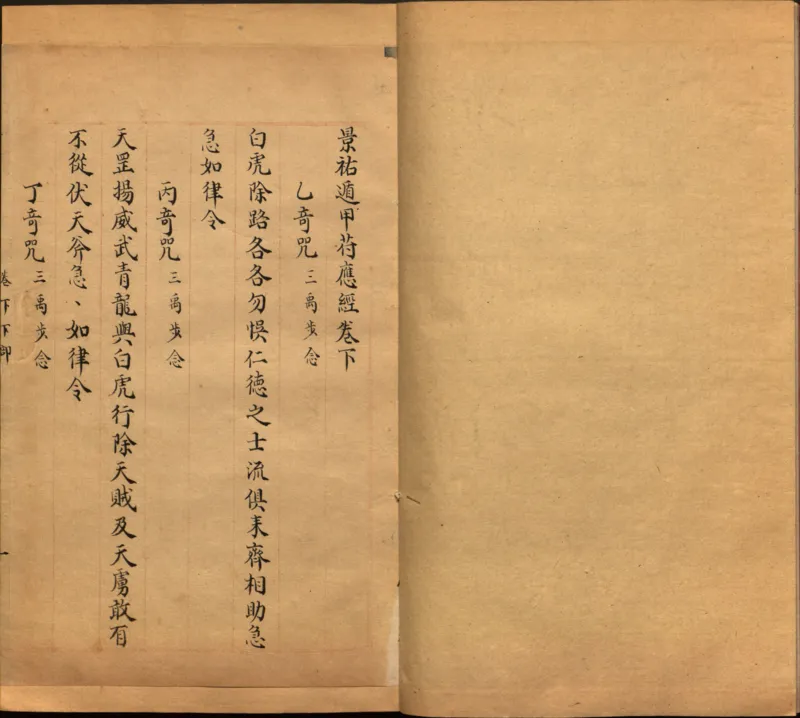 景祐遁甲苻應經卷下
乙竒咒三禹步念
白虎除路各各勿悞仁德之士流俱来齊相助急
急如律令
丙竒咒三禹步念
天罡揚威武青龍與白虎行除天賊及天虜敢有
不從伏天斧急丶如律令
丁竒咒三禹步念
卷下下
一